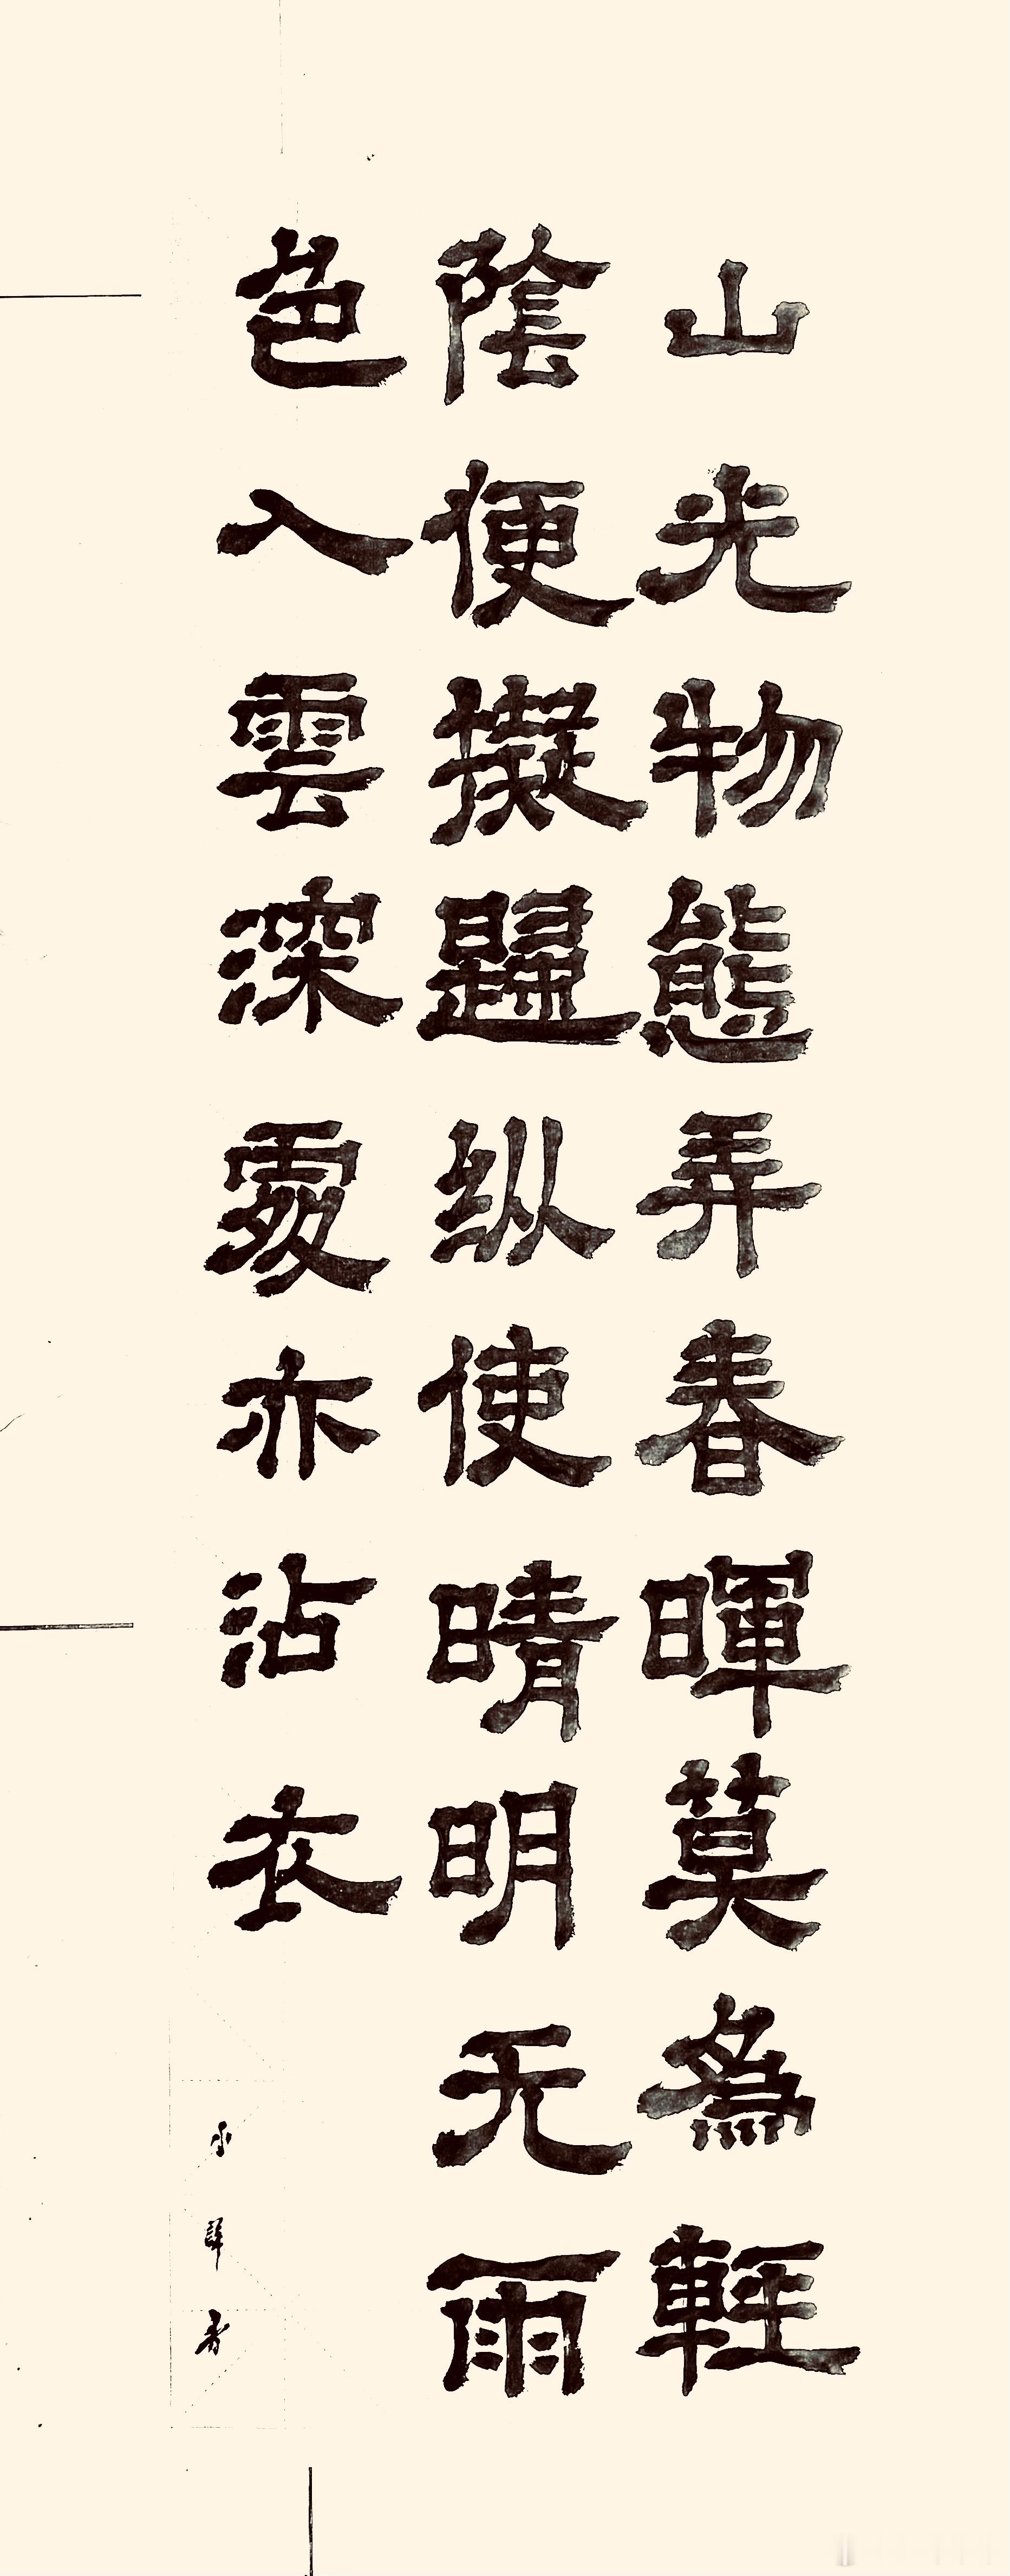 山光物態弄春暉莫為輕
陰便擬歸纵使晴明无雨
色入雲深處亦沾衣